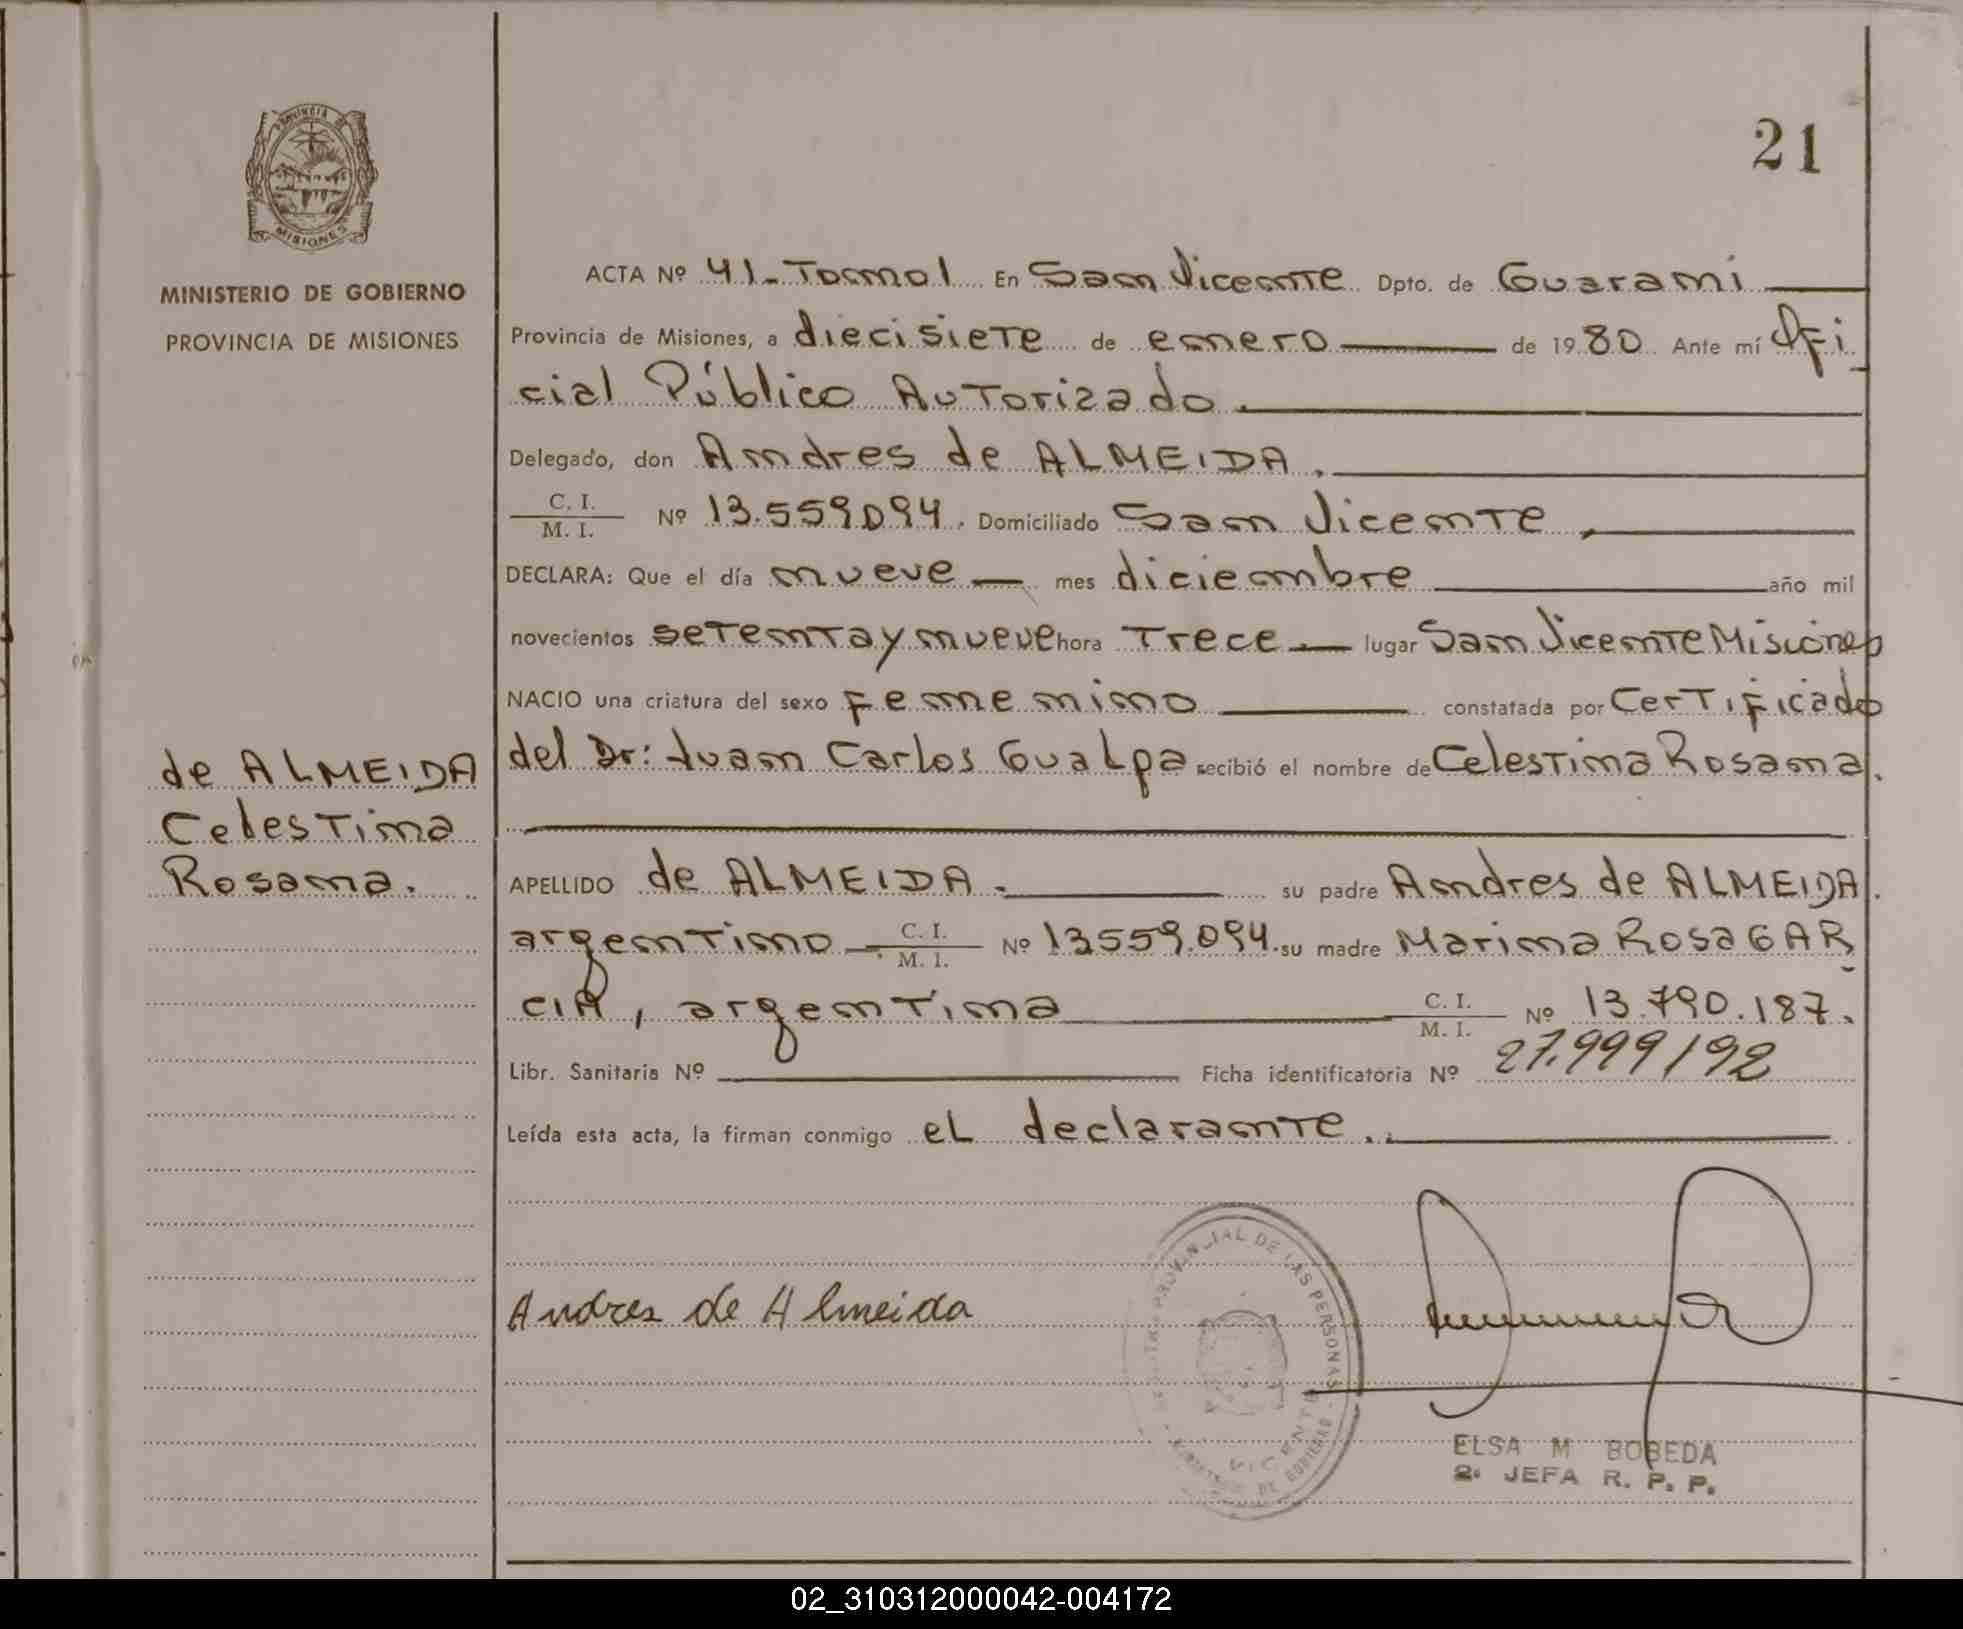 PROVINCIA DE
MISIONES
MINISTERIO DE GOBIERNO
PROVINCIA DE MISIONES
21
ACTA Nº 41-Tomo 1 En San Vicente Dpto. de Guarani
Provincia de Misiones, a diecisiete de enero de 1980 Ante mí Ofi
cial Público Autorizado.
Delegado, don Andres de ALMEIDA,
C. I.
M. I.
Nº 13.559.094. Domiciliado San Vicente,
DECLARA: Que el día nueve mes diciembre año mil
novecientos setenta y nueve hora Trece lugar San Vicente Misiones
NACIO una criatura del sexo Femenino constatada por Certificado
del Dr: Juan Carlos Gualpa recibió el nombre de Celestina Rosana.
de ALMEIDA
Celestina
Rosana.
APELLIDO de ALMEIDA. su padre Andres de ALMEIDA.
argentino C. I. M. I. Nº 13559.094. su madre Marina Rosa GAR
CIA, argentina C. I. M. I. Nº 13.790.187.
Libr. Sanitaria Nº Ficha identificatoria Nº 27.999/92
Leída esta acta, la firman conmigo el declarante.
Andres de Almeida
PROVINCIAL DE LAS PERSONAS
VICENTE
DE GOBIERNO
ELSA M BOBEDA
2ª JEFA R. P. P.
02_310312000042-004172